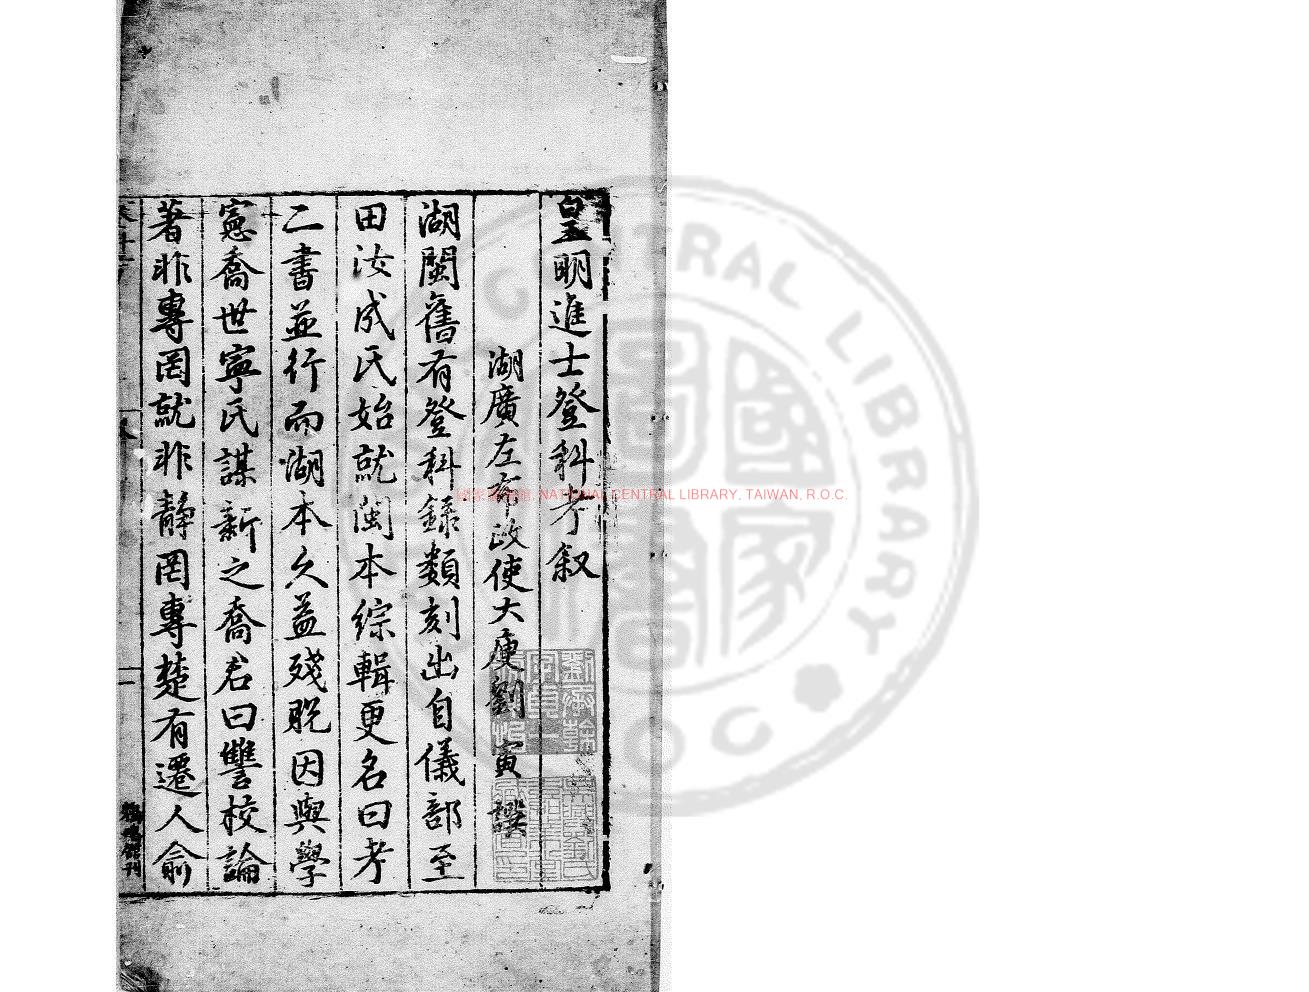 皇明進士登科考叙
湖廣左布政使大庾劉寅撰
湖閩舊有登科錄類刻出自儀部至
田汝成氏始就閩本綜輯更名曰考
二書並行而湖本久益殘脫因與學
憲喬世寧氏謀新之喬君曰讐校論
著非專罔就非靜罔專楚有遷人俞
NATIONAL CENTRAL LIBRARY, TAIWAN, R.O.C.
CENTRAL LIBRARY